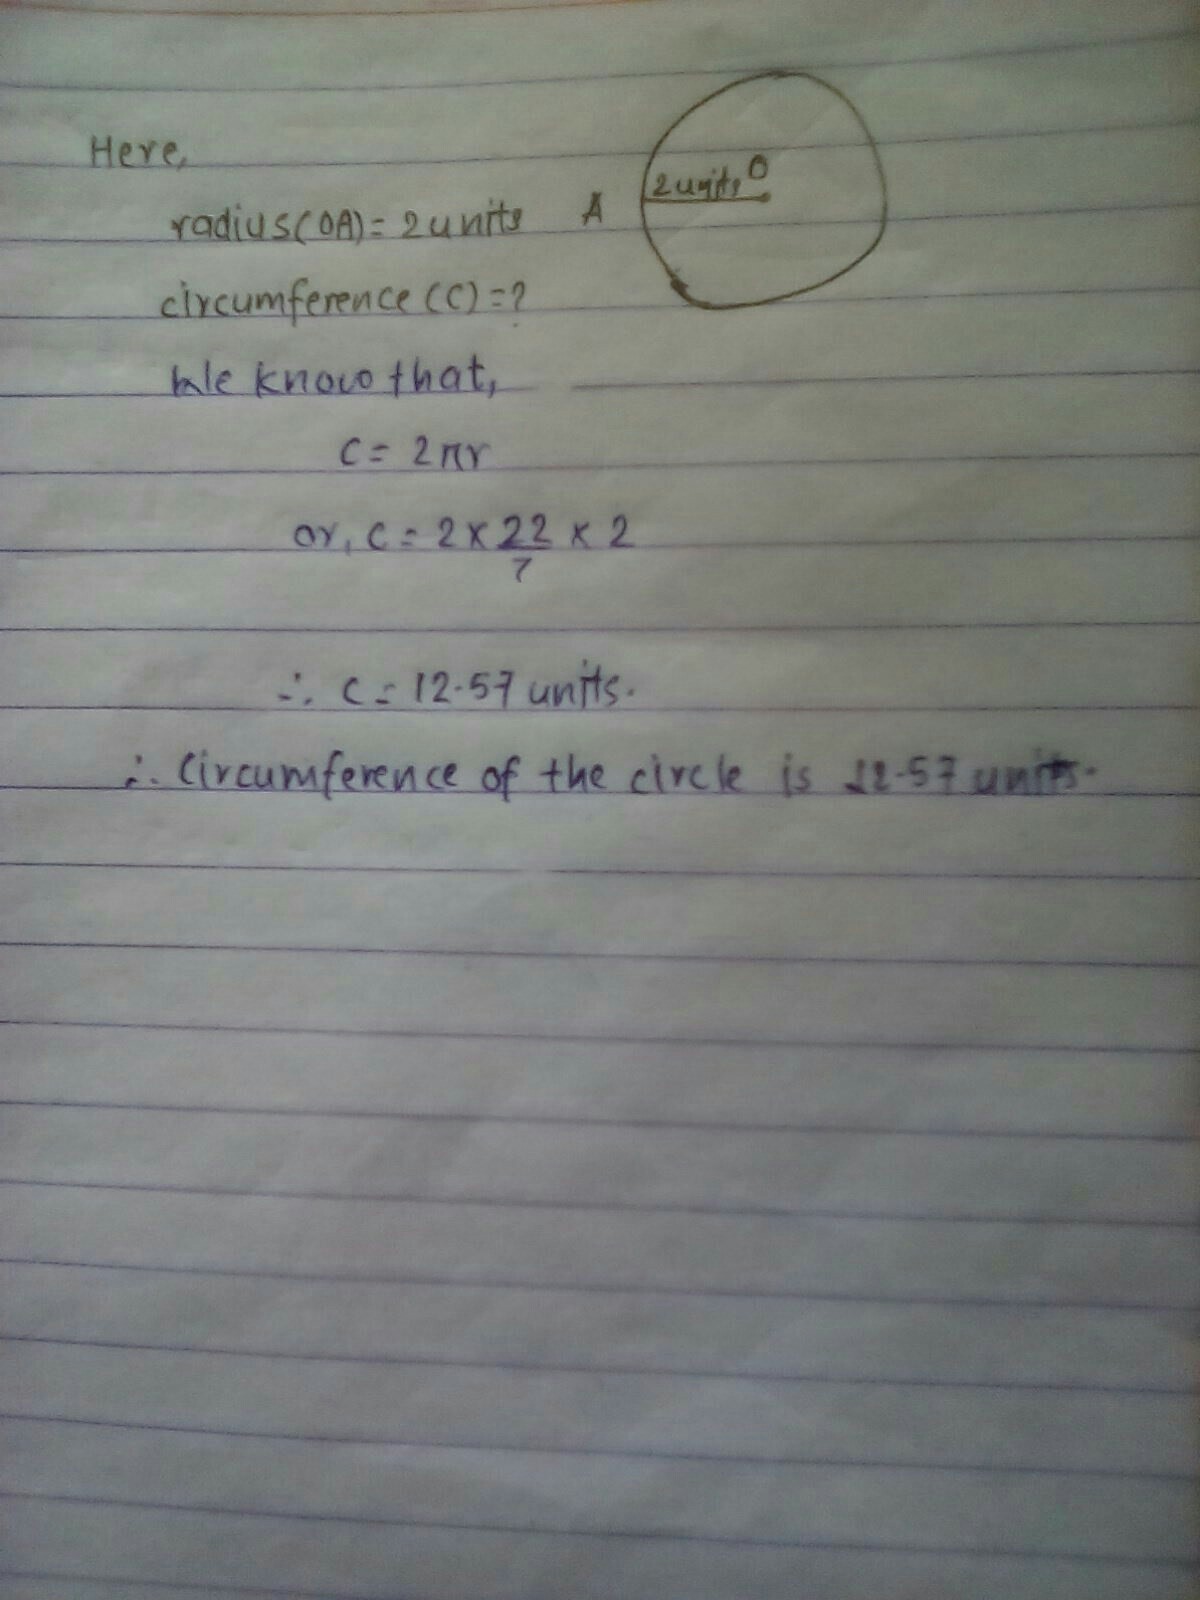 Here,
radius(OA)= 2 units
A
2 units O
circumference (C)=?
We know that,
C= 2πr
or, C = 2 × 22/7 × 2
∴ C = 12.57 units.
∴ Circumference of the circle is 12.57 units.